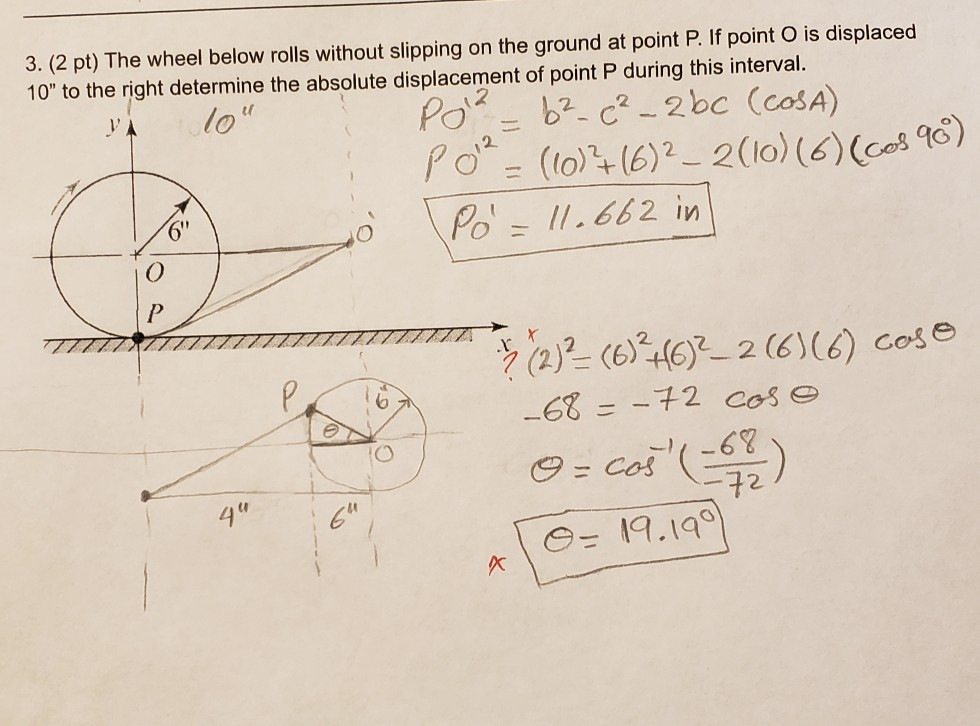 3. (2 pt) The wheel below rolls without slipping on the ground at point P. If point O is displaced
10" to the right determine the absolute displacement of point P during this interval.
y 10"
PO'² = b² - c² - 2bc (cosA)
PO'² = (10)² + (6)² - 2(10)(6)(cos 90°)
PO' = 11.662 in
6"
O'
O
P
x
x
? (2)² = (6)² + (6)² - 2(6)(6) cos θ
P 6
-68 = -72 cos θ
θ
O
θ = cos⁻¹(-68/-72)
4" 6"
θ = 19.19°
x